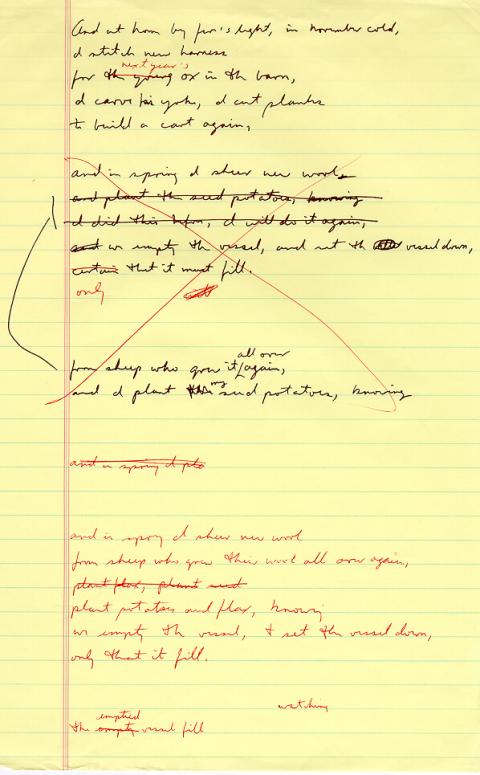 And at home by fire's light, in November cold,
I stitch new harness
next year's
for the young ox in the barn,
I carve his yoke, I cut planks
to build a cart again,
and in spring I sheer new wool
and plant the seed potatoes, knowing
I did this before, I will do it again,
and we empty the vessel, and set the vessel down,
certain that it must fill.
only
all over
from sheep who grow it again,
my
and I plant this seed potatoes, knowing
and in spring I pla
and in spring I sheer new wool
from sheep who grow their wool all over again,
plant flax, plant seed
plant potatoes and flax, knowing
we empty the vessel, & set the vessel down,
only that it fill.
watching
emptied
the empty vessel fill